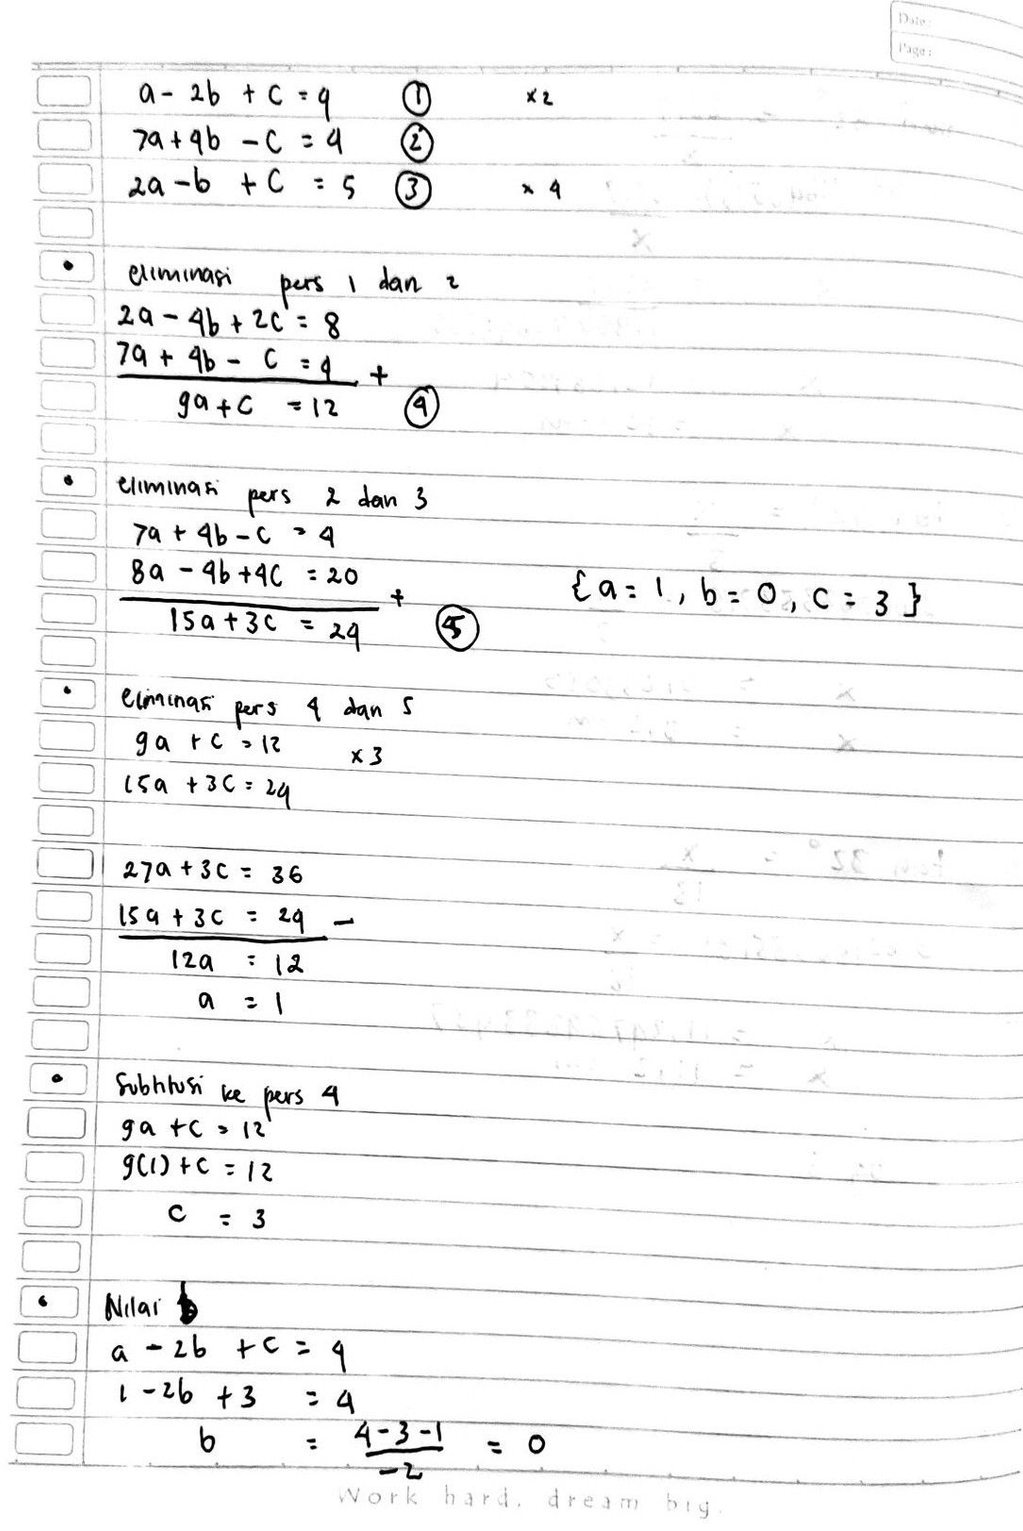 Date:
Page:
a - 2b + c = 4 ① ×2
7a + 4b - c = 4 ②
2a - b + c = 5 ③ × 4
• eliminasi pers 1 dan 2
2a - 4b + 2c = 8
7a + 4b - c = 4 +
9a + c = 12 ④
• eliminasi pers 2 dan 3
7a + 4b - c = 4
8a - 4b + 4c = 20 +
{a = 1, b = 0, c = 3}
15a + 3c = 24 ⑤
• eliminasi pers 4 dan 5
9a + c = 12 ×3
15a + 3c = 24
27a + 3c = 36
15a + 3c = 24 -
12a = 12
a = 1
• Subtitusi ke pers 4
9a + c = 12
9(1) + c = 12
c = 3
• Nilai b
a - 2b + c = 4
1 - 2b + 3 = 4
b = 4 - 3 - 1 / -2 = 0
Work hard. dream big.